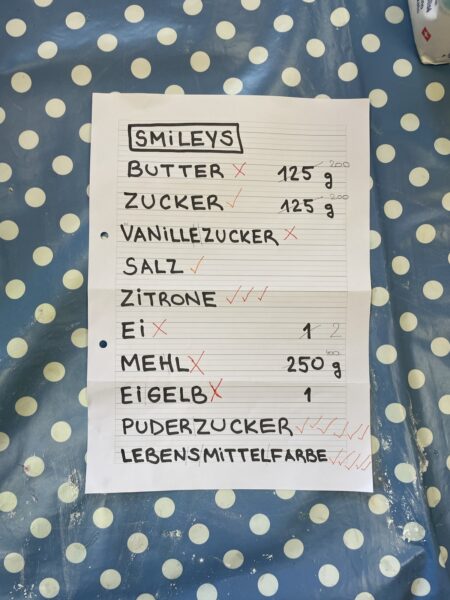 SMiLEYS
BUTTER 125 g 200
ZUCKER 125 g 200
VANiLLEZUCKER
SALZ
ZiTRONE
Ei 1 2
MEHL 250 g 400
EiGELB 1
PUDERZUCKER
LEBENSMiTTELFARBE